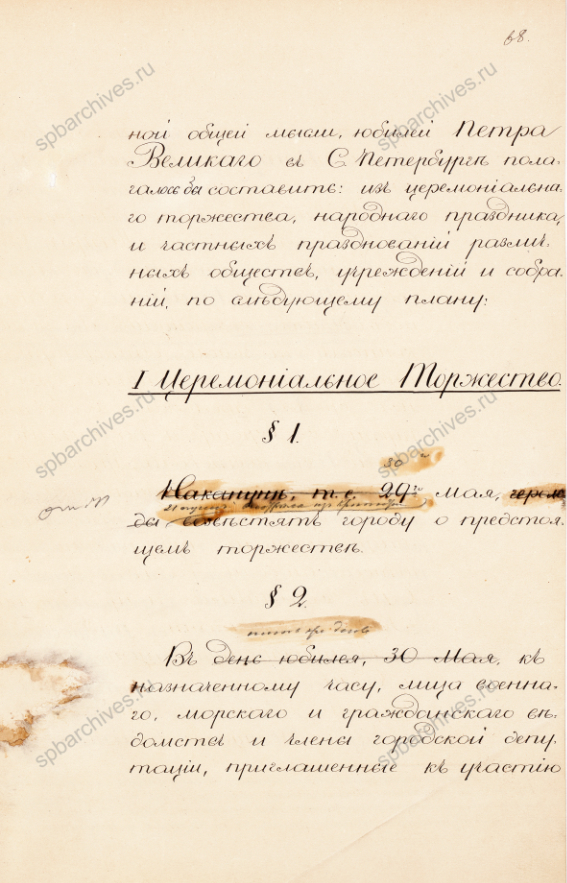 68.
ной общей мысли, юбилей Петра
Великаго въ С Петербургѣ пола-
галось бы составить: изъ церемоніальна-
го торжества, народнаго праздника,
и частныхъ празднованій различ-
ныхъ обществъ, учрежденій и собра-
ній, по слѣдующему плану:
I Церемоніальное Торжество.
§ 1.
30го
Наканунѣ, т. е. 29го Мая, героль-
21 пушеч. изъ крѣпости
ды возвѣстятъ городу о предстоя-
щемъ торжествѣ.
§ 2.
Въ день юбилея, 30 Мая, къ
назначенному часу, лица военна-
го, морскаго и гражданскаго вѣ-
домствъ и члены городской депу-
таціи, приглашенные къ участію
spbarchives.ru
spbarchives.ru
spbarchives.ru
spbarchives.ru
spbarchives.ru
spbarchives.ru